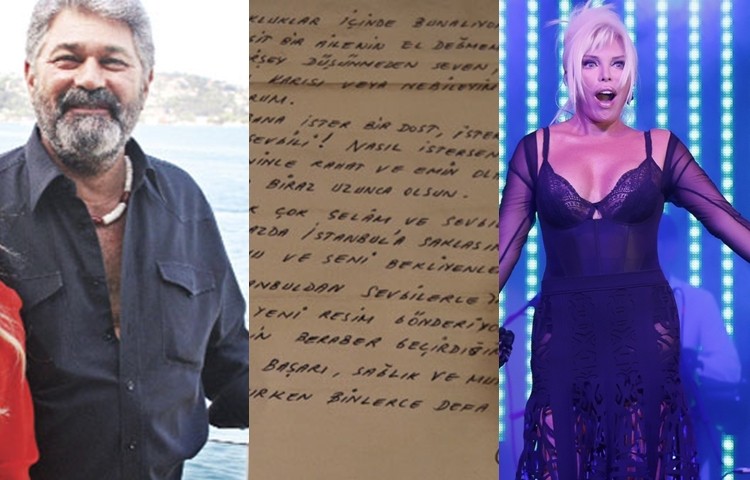 KLUKLAR İÇİNDE BUNALIYO
SİT BİR AİLENİN EL DEĞMEM
RŞEY DÜŞÜNMEDEN SEVEN,
KARISI VEYA NEBİLEYİM
RUM.
SANA İSTER BİR DOST, İSTER
SEVGİLİ! NASIL İSTERSEN
NİNLE RAHAT VE EMİN OLA
BİRAZ UZUNCA OLSUN.
ÇOK SELÂM VE SEVGİ
AZDA İSTANBUL'A SAKLASIN
U VE SENİ BEKLİYENLE
ANBULDAN SEVGİLERLE
YENİ RESİM GÖNDERİYO
İN BERABER GEÇİRDİĞİ
BAŞARI, SAĞLIK VE MU
RKEN BİNLERCE DEFA